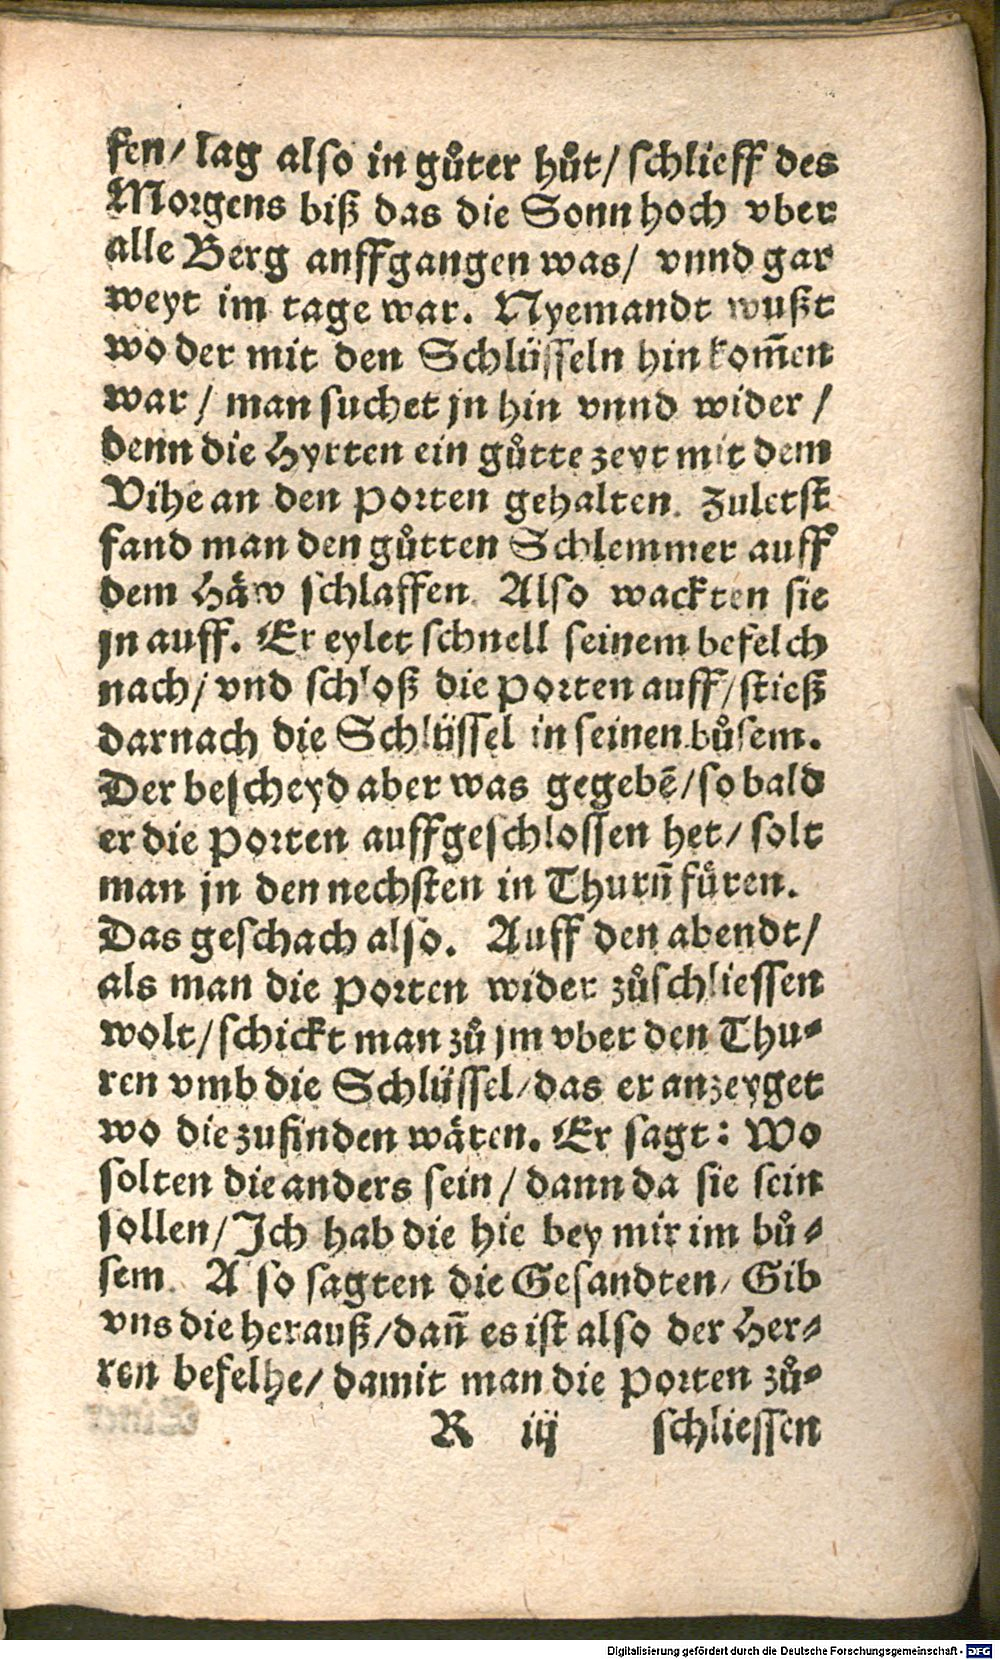 fen/ lag also in gůter hůt/ schlieff des
Morgens biß das die Sonn hoch vber
alle Berg auffgangen was/ vnnd gar
weyt im tage war. Nyemandt wußt
wo der mit den Schlüsseln hin kom̃en
war/ man suchet jn hin vnnd wider/
denn die Hyrten ein gůtte zeyt mit dem
Vihe an den porten gehalten. Zuletst
fand man den gůtten Schlemmer auff
dem Häw schlaffen. Also wackten sie
jn auff. Er eylet schnell seinem befelch
nach/ vnd schloß die porten auff/ stieß
darnach die Schlüssel in seinen bůsem.
Der bescheyd aber was gegebẽ/ so bald
er die porten auffgeschlossen het/ solt
man jn den nechsten in Thurñ fůren.
Das geschach also. Auff den abendt/
als man die porten wider zůschliessen
wolt/ schickt man zů jm vber den Thu-
ren vmb die Schlüssel/ das er anzeyget
wo die zufinden wären. Er sagt: Wo
solten die anders sein/ dann da sie sein
sollen/ Ich hab die hie bey mir im bů-
sem. A so sagten die Gesandten/ Gib
vns die herauß/ dañ es ist also der Her-
ren befelhe/ damit man die porten zů-
R iij schliessen
Digitalisierung gefördert durch die Deutsche Forschungsgemeinschaft - DFG